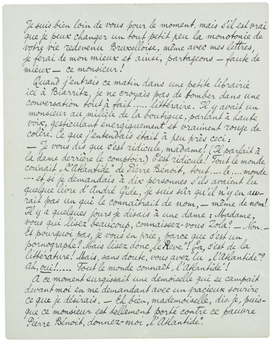 Je suis bien loin de vous pour le moment, mais s'il est vrai
que je peux changer un tout petit peu la monotonie de
votre vie redevenue Bruxelloise, même avec mes lettres,
je ferai de mon mieux et ainsi, partageons — faute de
mieux — ce monsieur!
Quand j'entrais ce matin dans une petite librairie
ici à Biarritz, je ne croyais pas de tomber dans une
conversation tout à fait ..... littéraire. Il y avait un
monsieur au milieu de la boutique, parlant à haute
voix, gesticulant énergiquement et vraiment rouge de
colère. Ce que j'entendais était à peu près ceci:
— Je vous dis que c'est ridicule, madame! (Il parlait à
la dame derrière le comptoir.) C'est ridicule! Tout le monde
connaît "l'Atlantide" de Pierre Benoit, tout .... le .... monde
— et si je demandais à dix personnes s'ils avaient lu
quelque livre d'André Gide, je suis sûr qu'il n'y en aurait
pas un qui le connaîtrait de nom, — même de nom!
Il y a quelques jours je disais à une dame: Madame,
vous qui lisez beaucoup, connaissez-vous Zola? — Non. —
Et pourquoi pas, je vous en prie, parce que c'est un
pornographe? Mais lisez donc "le Rêve"! Ça, c'est de la
littérature! Mais, sans doute, vous avez lu "l'Atlantide"?
Ah, oui!..... Tout le monde connaît "l'Atlantide"!
A ce moment surgissait une demoiselle qui se campait
devant moi en me demandant avec un gracieux sourire
ce que je désirais. — Eh bien, mademoiselle, dis-je, puisque
ce monsieur est tellement porté contre ce pauvre
Pierre Benoit, donnez-moi "l'Atlantide".